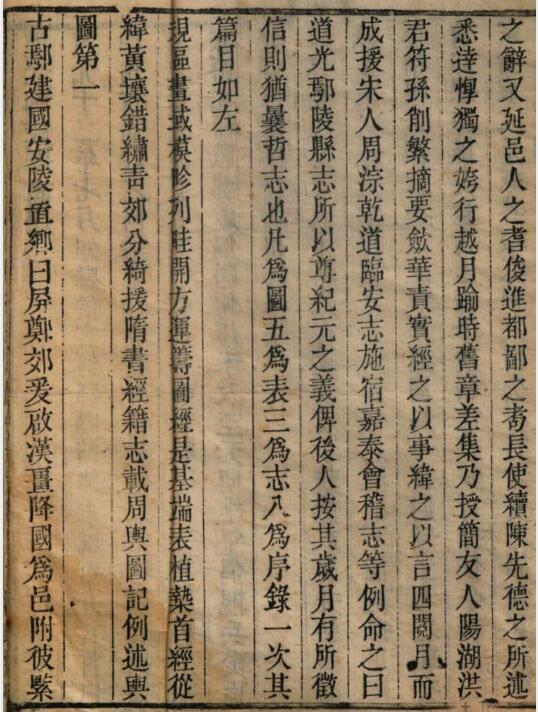 之辭又延邑人之耆俊進都鄙之耇長使續陳先德之所述
悉逹惸獨之姱行越月踰時舊章差集乃授簡友人陽湖洪
君符孫削繁摘要斂華責實經之以事緯之以言四閱月而
成援宋人周淙乾道臨安志施宿嘉泰會稽志等例命之曰
道光鄢陵縣志所以尊紀元之義俾後人按其歲月有所徵
信則猶曩哲志也凡爲圖五爲表三爲志八爲序錄一次其
篇目如左
規區畫域模畛列畦開方運籌圖經是基端表植槷首經從
緯黃壤錯繡靑郊分綺援隋書經籍志載周輿圖記例述輿
圖第一
古鄢建國安陵道鄉曰屏鄭郊爰啟漢畺降國爲邑附彼繄